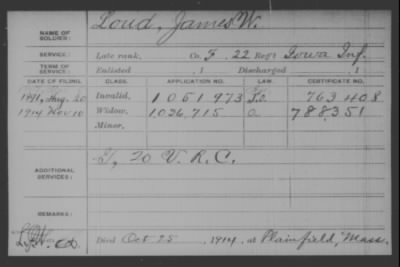 NAME OF SOLDIER: Loud, James W.
SERVICE: Late rank, Co. F, 22 Reg't Iowa Inf.
TERM OF SERVICE: Enlisted 1 Discharged 1
DATE OF FILING. CLASS. APPLICATION NO. LAW. CERTIFICATE NO.
1891, Aug. 20 Invalid, 1051973 763408
1914 Nov 10 Widow, 1036,715 788,351
Minor,
ADDITIONAL SERVICES: I, 20 V. R. C.
REMARKS:
Died Oct. 25, 1914, at Plainfield, Mass.